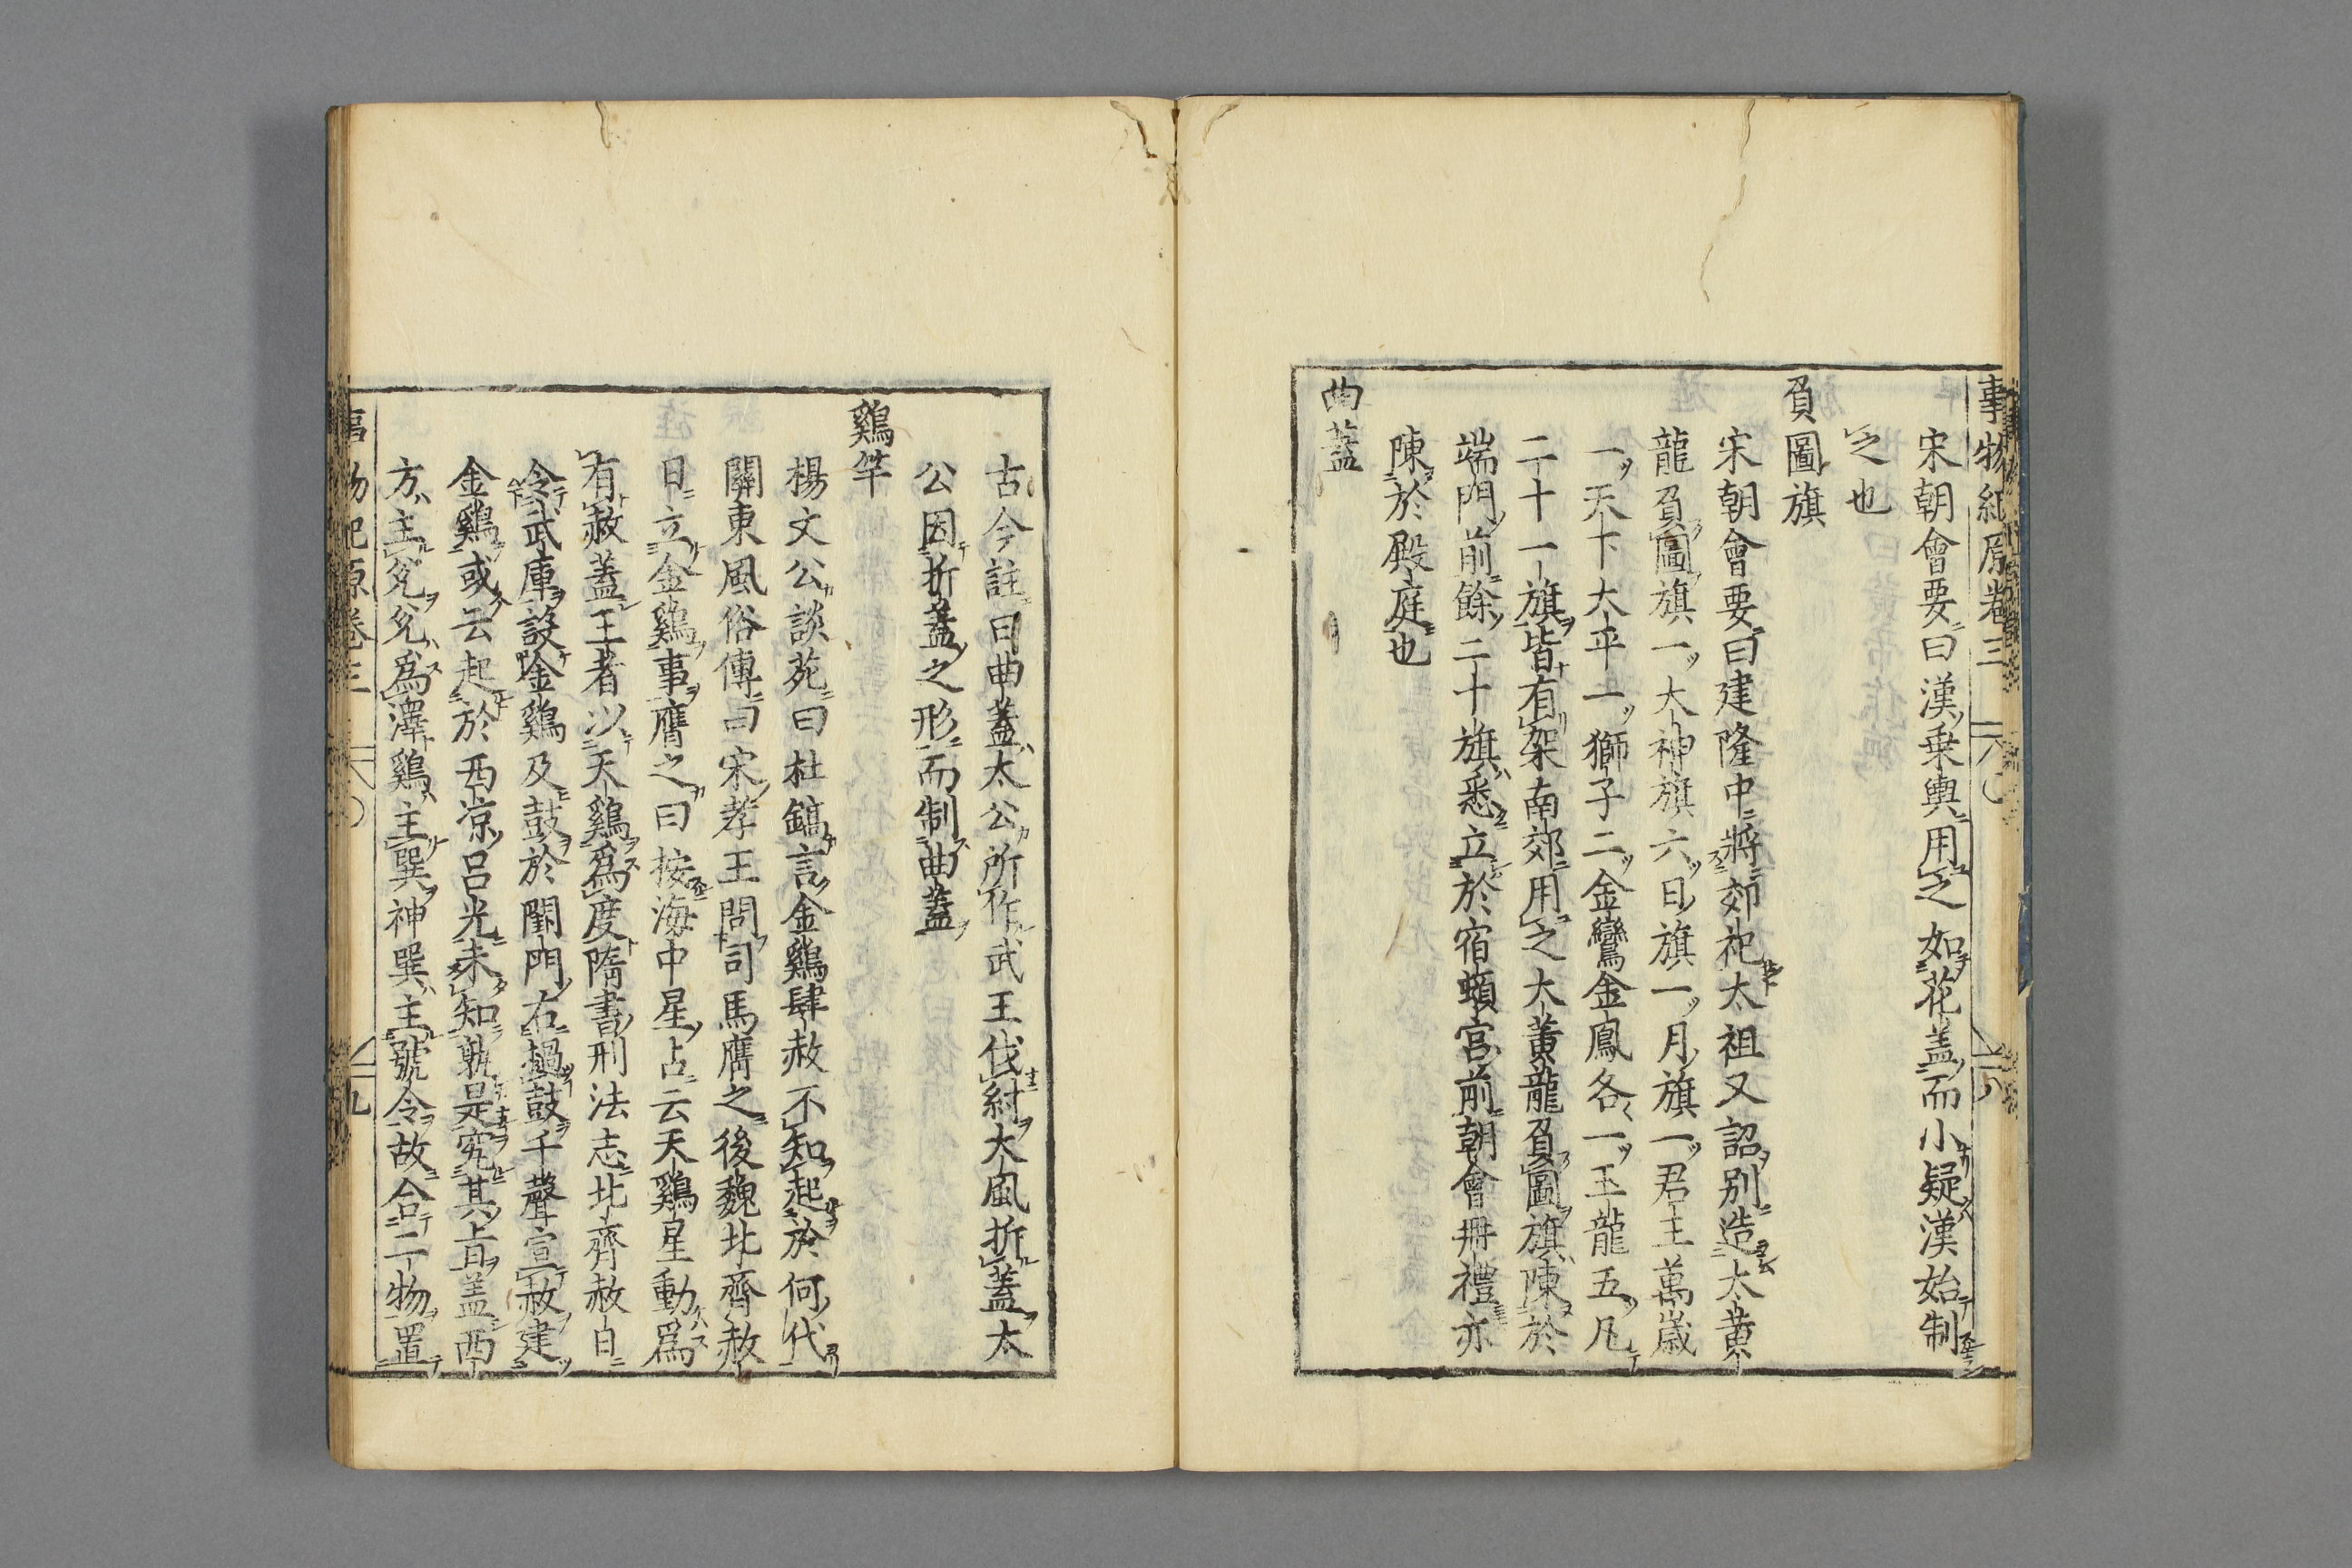 事物紀原卷三 八
宋朝會要曰漢乗輿用之如花盖而小疑漢始制
之也
負圖旗
宋朝會要曰建隆中將郊祀太祖又詔別造大黄
龍負圖旗一大神旗六日旗一月旗一君王萬歳
一天下太平一獅子二金鸞金鳳各一王龍五凡
二十一旗皆有架南郊用之大黄龍負圖旗陳於
端門前餘二十旗悉立於宿頓宫前朝會冊禮亦
陳於殿庭也
曲蓋
古今註曰曲蓋太公所作武王伐紂大風折蓋太
公因折蓋之形而制曲蓋
鷄竿
楊文公談苑曰杜鎬言金鷄肆赦不知起於何代
關東風俗傳曰宋孝王問司馬膺之後魏北齊赦
日立金鷄事膺之曰按海中星占云天鷄星動爲
有赦蓋王者以天鷄爲度隋書刑法志北齊赦日
令武庫設金鷄及鼓於闉門右撾鼓千聲宣赦建
金鷄或云起於西凉呂光未知孰是究其旨盖西
方主兊兊爲澤鷄主巽神巽主號令故合二物置
事物紀原卷三 九